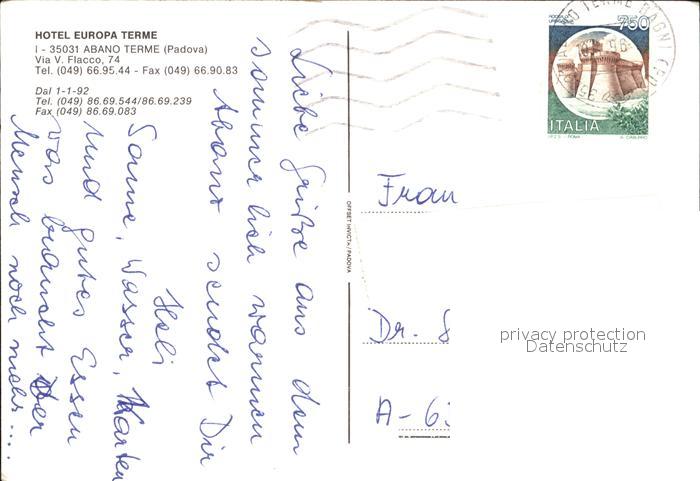 HOTEL EUROPA TERME
I - 35031 ABANO TERME (Padova)
Via V. Flacco, 74
Tel. (049) 66.95.44 - Fax (049) 66.90.83
Dal 1-1-92
Tel. (049) 86.69.544/86.69.239
Fax (049) 86.69.083
Liebe Grüße aus dem
sommerlich warmen
Abano sendet Dir
Heli
Sonne, Wasser, Karten
und gutes Essen
was braucht der
Mensch noch mehr....
OFFSET INVICTA / PADOVA
750
ITALIA
TERME BAGNI
Frau
Dr. S
A-6
privacy protection
Datenschutz